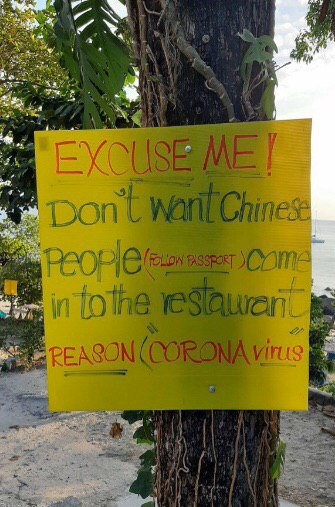 EXCUSE ME!
Don't want Chinese
People (FOLLOW PASSPORT) come
in to the restaurant
REASON ("CORONA virus"